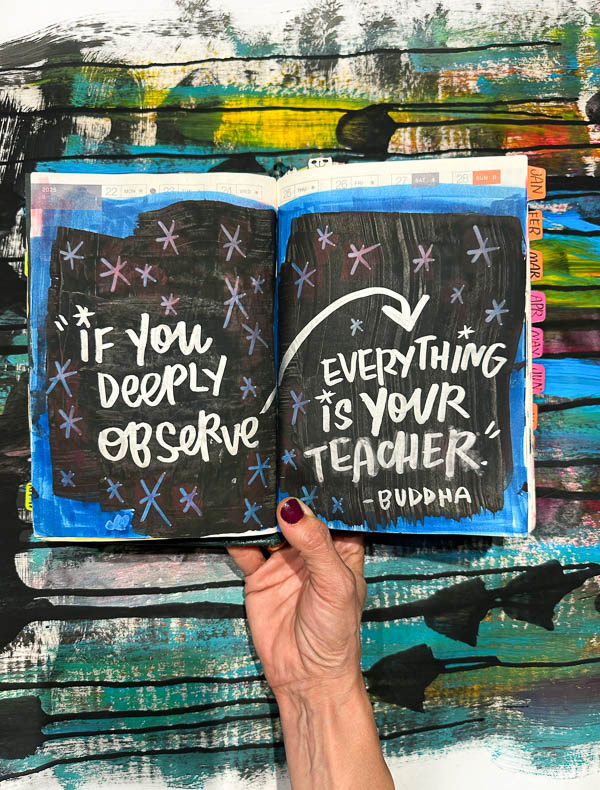 2025
22 MON
23
24 WED
25 THU
26 FRI
27 SAT
28 SUN
JAN
FEB
MAR
APR
MAY
JUN
"IF YOU
DEEPLY
OBSERVE
EVERYTHING
IS YOUR
TEACHER."
-BUDDHA